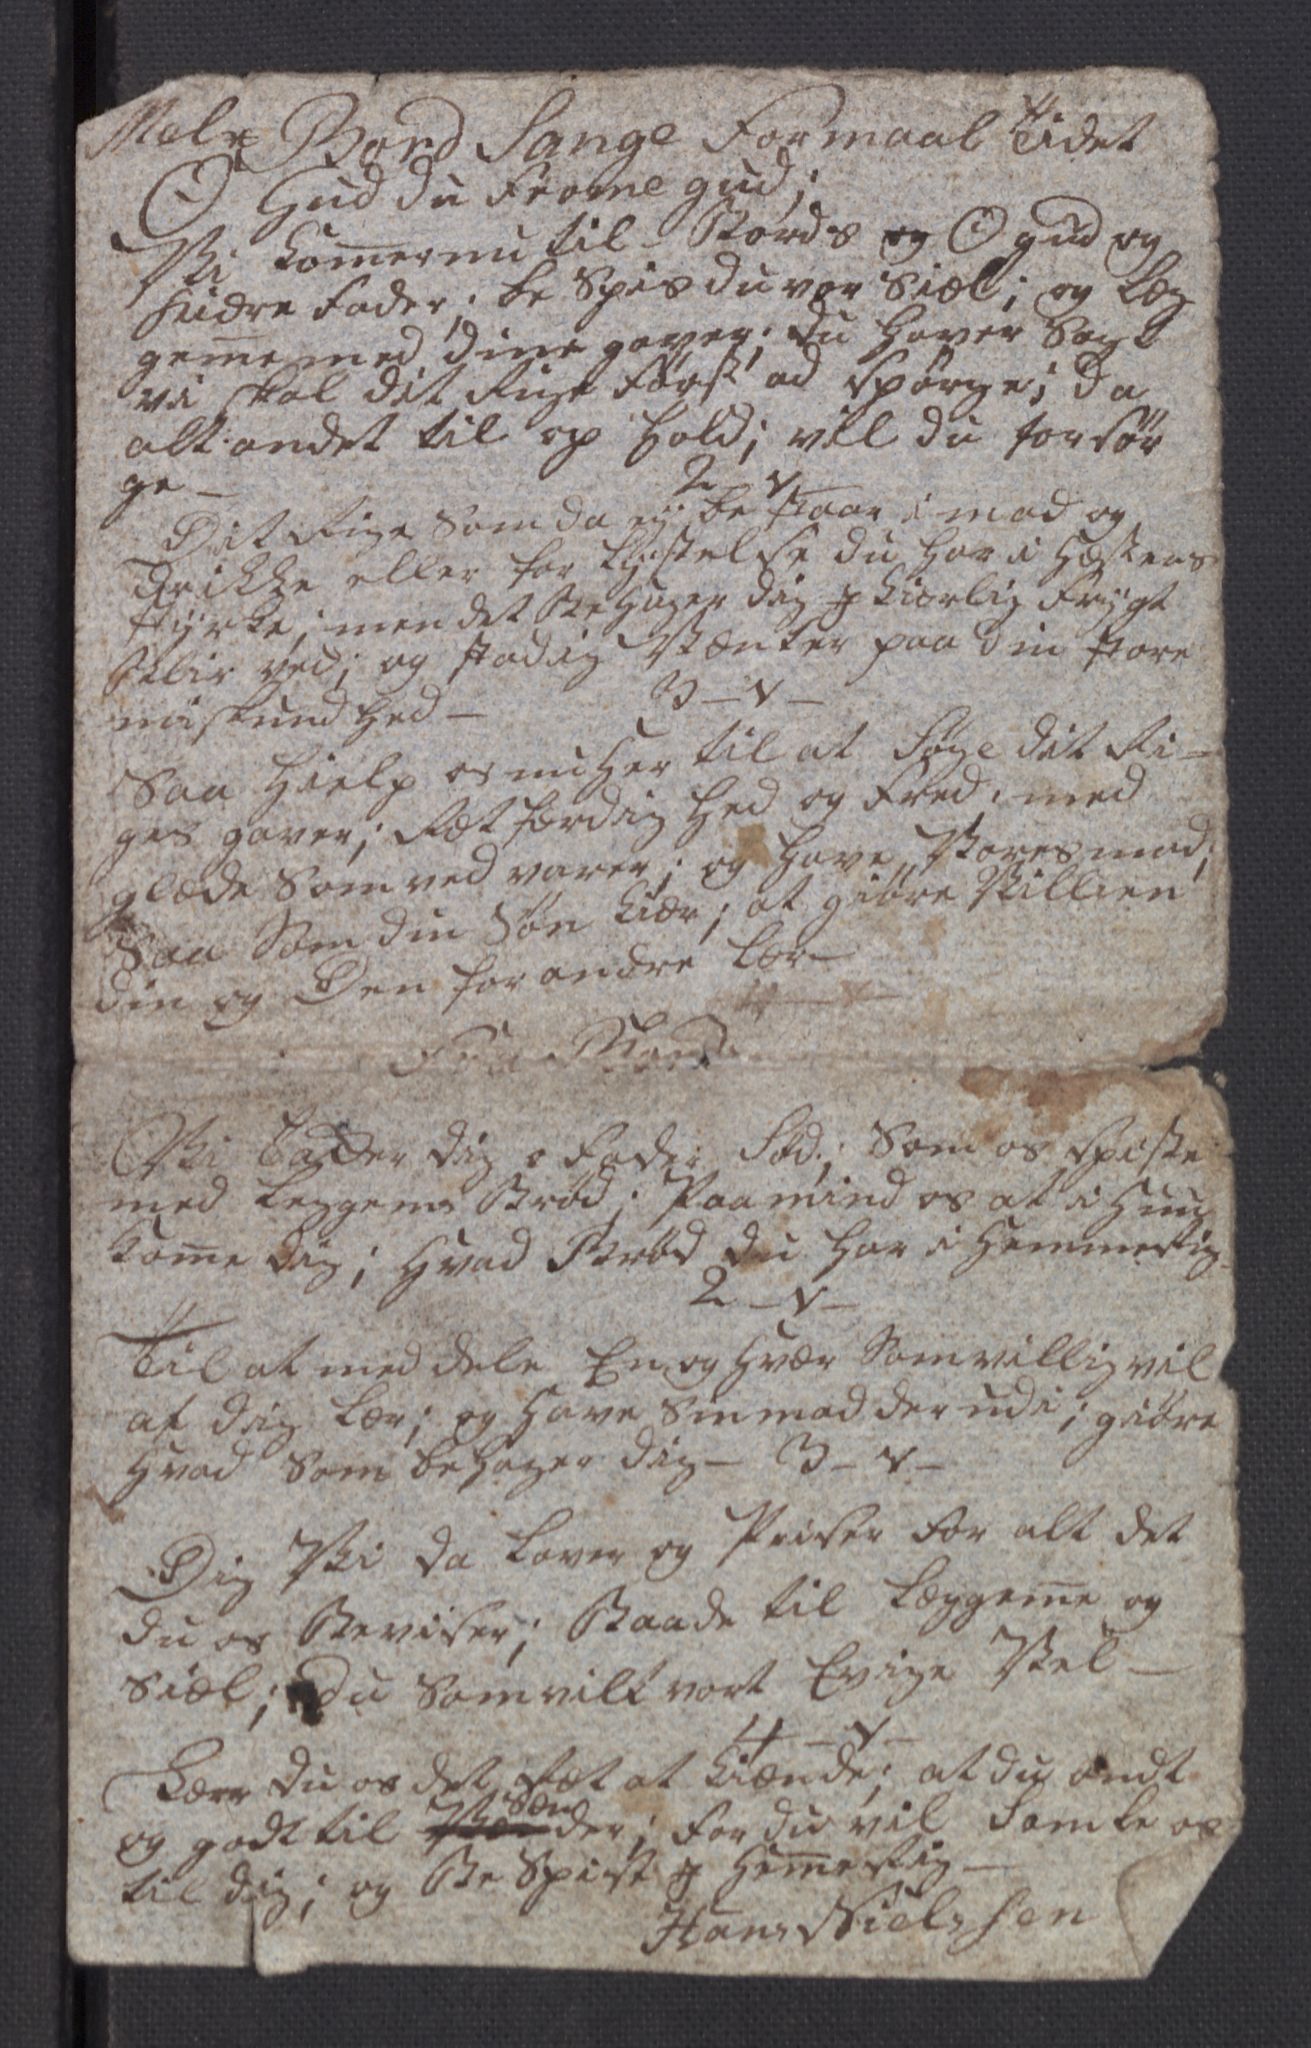 Mel: Bord Sange Formaal Tidet
O Gud du Frome gud;
Vi komer nu til Bords og O gud og
Kiære Fader; be Spis du vor Siæl; og Læg
geme med dine gaver; du haver Sagt
vi skal dit Rige Først ad spørge; Da
alt andet til op hold; vil du forsør
ge – 2 – v –
Dit Rige Som da ey be staar i mad og
Drikke eller for Lystelse du har i Hæstens
styrke; men det Behager dig I Kiærlig Frygt
Blir ved; og stadig Vænter paa din store
miskund hed – 3 – v –
Saa Hielp os nu Her til at Søge dit Ri-
ges gaver; Ræt færdig hed og Fred. med
glæde Som ved varer; og have Vores mad;
Saa Som din Søn Kiær; at giøre Villien
din og Den for andre Lær –
Fra Bord
Vi Takker dig o Fader Sød; Som os spiste
med Leggems Brød; Paa mind os at i Huu
kome dig; Hvad Brød du har i Hemmerig –
2 – v –
Til at med dele En og Hvær Som villig vil
af dig Lær; og Have Sin mad der udi; giøre
Hvad Som behager dig – 3 – v –
Dig Vi da Lover og Priser for alt det
du os Beviser; Baade til Læggeme og
Siæl; Du Som vilt vort Evige Vel –
4 – v –
Lær du os det Ræt at kiænde; at du ondt
og godt til Sæn der; for du vil Samle os
til dig; og Be Spise I Himerig –
Hans Nielssen